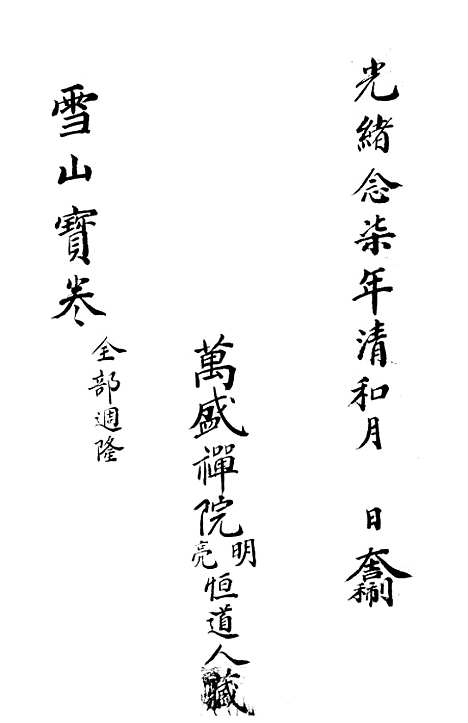 光緒念柒年清和月 日
萬盛禪院明亮恒道人藏
雪山寶卷
全部週隆